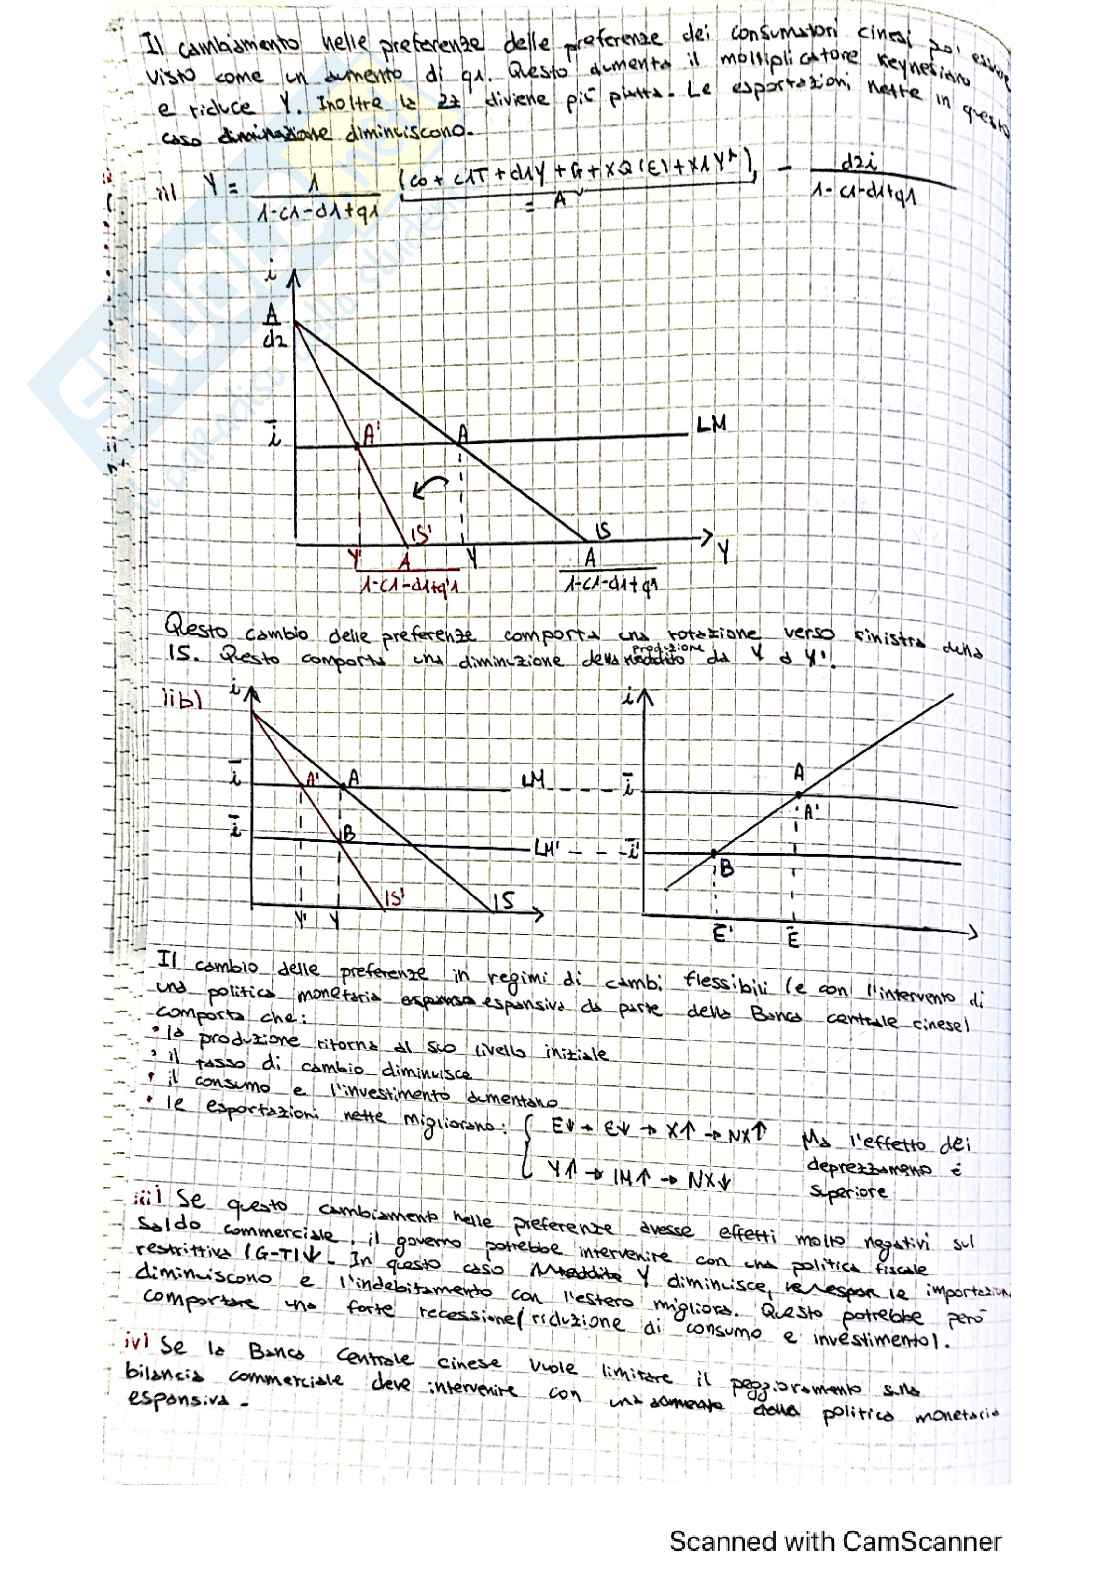 Il cambiamento nelle preferenze delle preferenze dei consumatori cinesi può essere
visto come un aumento di q1. Questo aumenta il moltiplicatore keynesiano
e riduce Y. Inoltre la ZZ diviene più piatta. Le esportazioni nette in questo
caso diminuiscono.
ii) Y = 1 / 1-c1-d1+q1 (c0 + c1T + d1Y + G + XQ(E) + X1Y*) - d2i / 1-c1-d1+q1
= A
i
A / d2
i
A'
A
LM
IS'
IS
Y'
Y
Y
A / 1-c1-d1+q'1
A / 1-c1-d1+q1
Questo cambio delle preferenze comporta una rotazione verso sinistra della
IS. Questo comporta una diminuzione della produzione da Y a Y'.
iib)
i
i
A'
A
LM
i
B
LM'
IS'
IS
Y'
Y
i
i
A
A'
i'
B
E'
E
Il cambio delle preferenze in regimi di cambi flessibili (e con l'intervento di
una politica monetaria espansiva da parte della Banca centrale cinese)
comporta che:
• la produzione ritorna al suo livello iniziale
• il tasso di cambio diminuisce
• il consumo e l'investimento aumentano
• le esportazioni nette migliorano: { E↓ → ε↓ → X↑ → NX↑
Y↑ → IM↑ → NX↓
Ma l'effetto del
deprezzamento è
superiore
iii) Se questo cambiamento nelle preferenze avesse effetti molto negativi sul
saldo commerciale, il governo potrebbe intervenire con una politica fiscale
restrittiva (G-T)↓. In questo caso Y diminuisce, le importazioni
diminuiscono e l'indebitamento con l'estero migliora. Questo potrebbe però
comportare una forte recessione (riduzione di consumo e investimento).
iv) Se la Banca Centrale cinese vuole limitare il peggioramento sulla
bilancia commerciale deve intervenire con una politica monetaria
espansiva.
Scanned with CamScanner